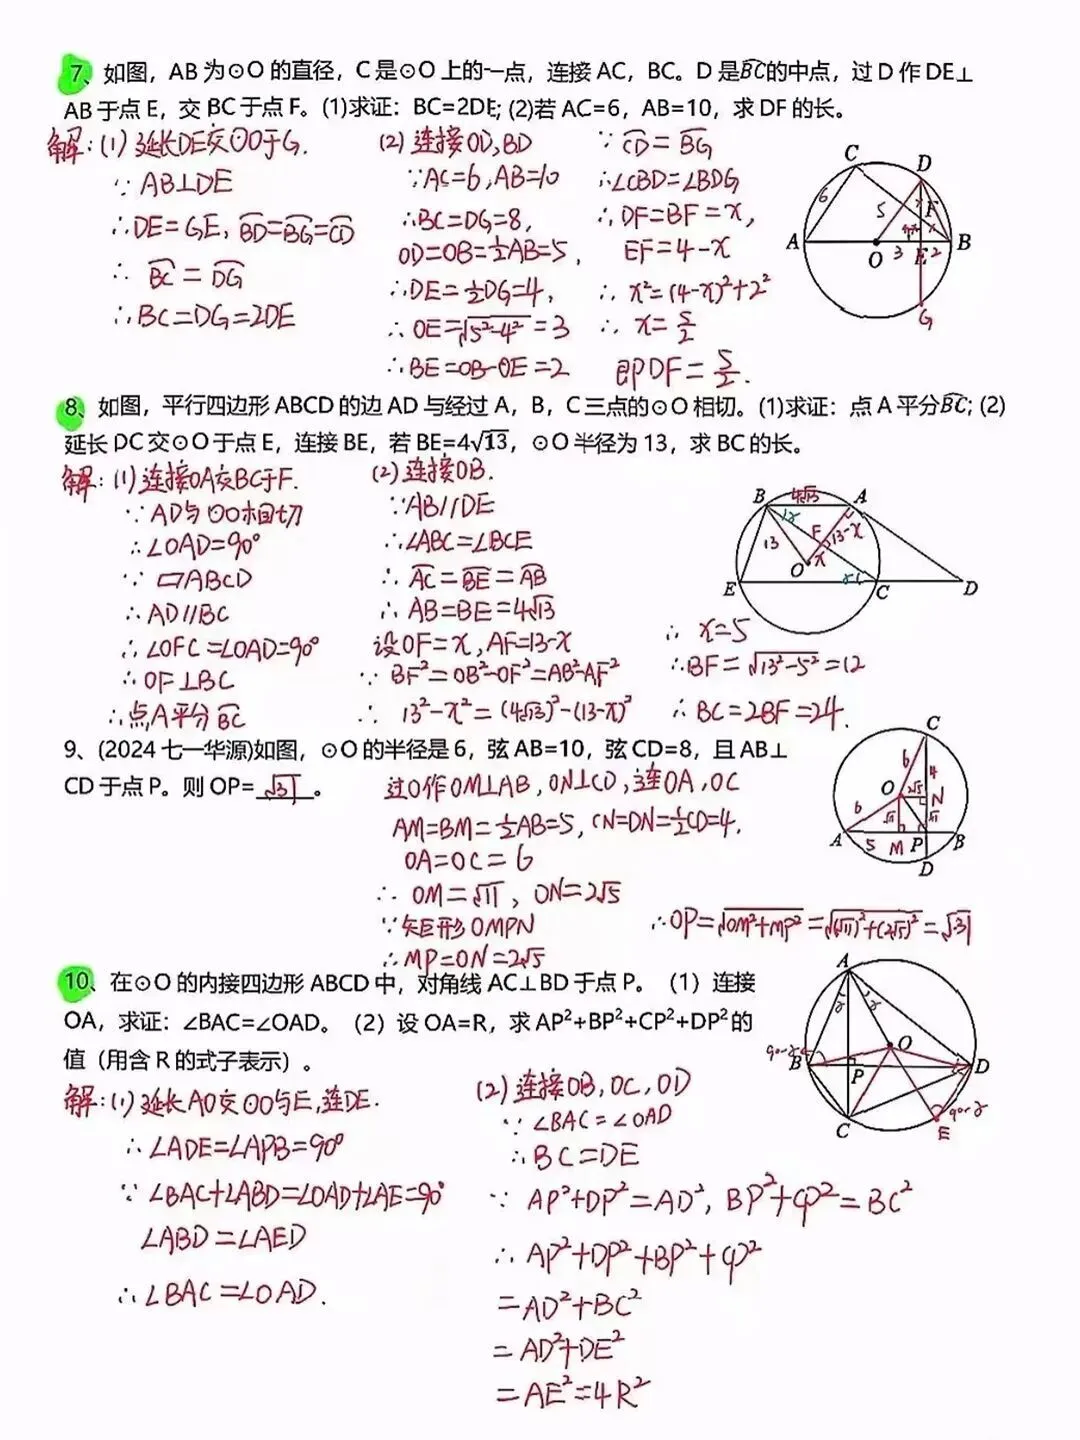 7、如图，AB为⊙O的直径，C是⊙O上的一点，连接AC，BC。D是B͡C的中点，过D作DE⊥
AB于点E，交BC于点F。(1)求证：BC=2DE; (2)若AC=6，AB=10，求DF的长。
解：(1) 延长DE交⊙O于G.
∵ AB⊥DE
∴DE=GE, B͡D=B͡G=C͡D
∴ B͡C = D͡G
∴BC=DG=2DE
(2) 连接OD,BD
∵AC=6,AB=10
∴BC=DG=8,
OD=OB=½AB=5,
∴DE=½DG=4,
∴OE=√5²-4² =3
∴BE=OB-OE=2
∵ C͡D = B͡G
∴∠CBD=∠BDG
∴DF=BF=x,
EF=4-x
∴ x²=(4-x)²+2²
∴ x=5/2
即DF=5/2.
C D 6 5 F x 4-x x A O 3 E 2 B G
8、如图，平行四边形ABCD的边AD与经过A，B，C三点的⊙O相切。(1)求证：点A平分B͡C; (2)
延长DC交⊙O于点E，连接BE，若BE=4√13，⊙O半径为13，求BC的长。
解：(1)连接OA交BC于F.
∵AD与⊙O相切
∴∠OAD=90°
∵ ▱ABCD
∴AD∥BC
∴∠OFC=∠OAD=90°
∴OF⊥BC
∴点A平分B͡C
(2)连接OB.
∵AB//DE
∴∠ABC=∠BCE
∴A͡C=B͡E=A͡B
∴AB=BE=4√13
设OF=x,AF=13-x
∵ BF²=OB²-OF²=AB²-AF²
∴ 13²-x²=(4√13)²-(13-x)²
∴ x=5
∴BF=√13²-5²=12
∴BC=2BF=24.
B 4√13 A α F 13-x 13 O x α E C D
9、(2024七一华源)如图，⊙O的半径是6，弦AB=10，弦CD=8，且AB⊥
CD于点P。则OP=√31。
过O作OM⊥AB,ON⊥CD,连OA,OC
AM=BM=½AB=5, CN=DN=½CD=4.
OA=OC=6
∴ OM=√11, ON=2√5
∵矩形OMPN
∴MP=ON=2√5
∴OP=√OM²+MP²=√(√11)²+(2√5)²=√31
C 6 4 O 2√5 N 6 √11 √11 A 5 M P B D
10、在⊙O的内接四边形ABCD中，对角线AC⊥BD于点P。（1）连接
OA，求证：∠BAC=∠OAD。（2）设OA=R，求AP²+BP²+CP²+DP²的
值（用含R的式子表示）。
解：(1) 延长AO交⊙O与E,连DE.
∴∠ADE=∠APB=90°
∵ ∠BAC+∠ABD=∠OAD+∠AE=90°
∠ABD=∠AED
∴∠BAC=∠OAD.
(2) 连接OB,OC,OD
∵ ∠BAC=∠OAD
∴BC=DE
∵ AP²+DP²=AD², BP²+CP²=BC²
∴ AP²+DP²+BP²+CP²
=AD²+BC²
=AD²+DE²
=AE²=4R²
A α α O 90-α B P D C E 90-α